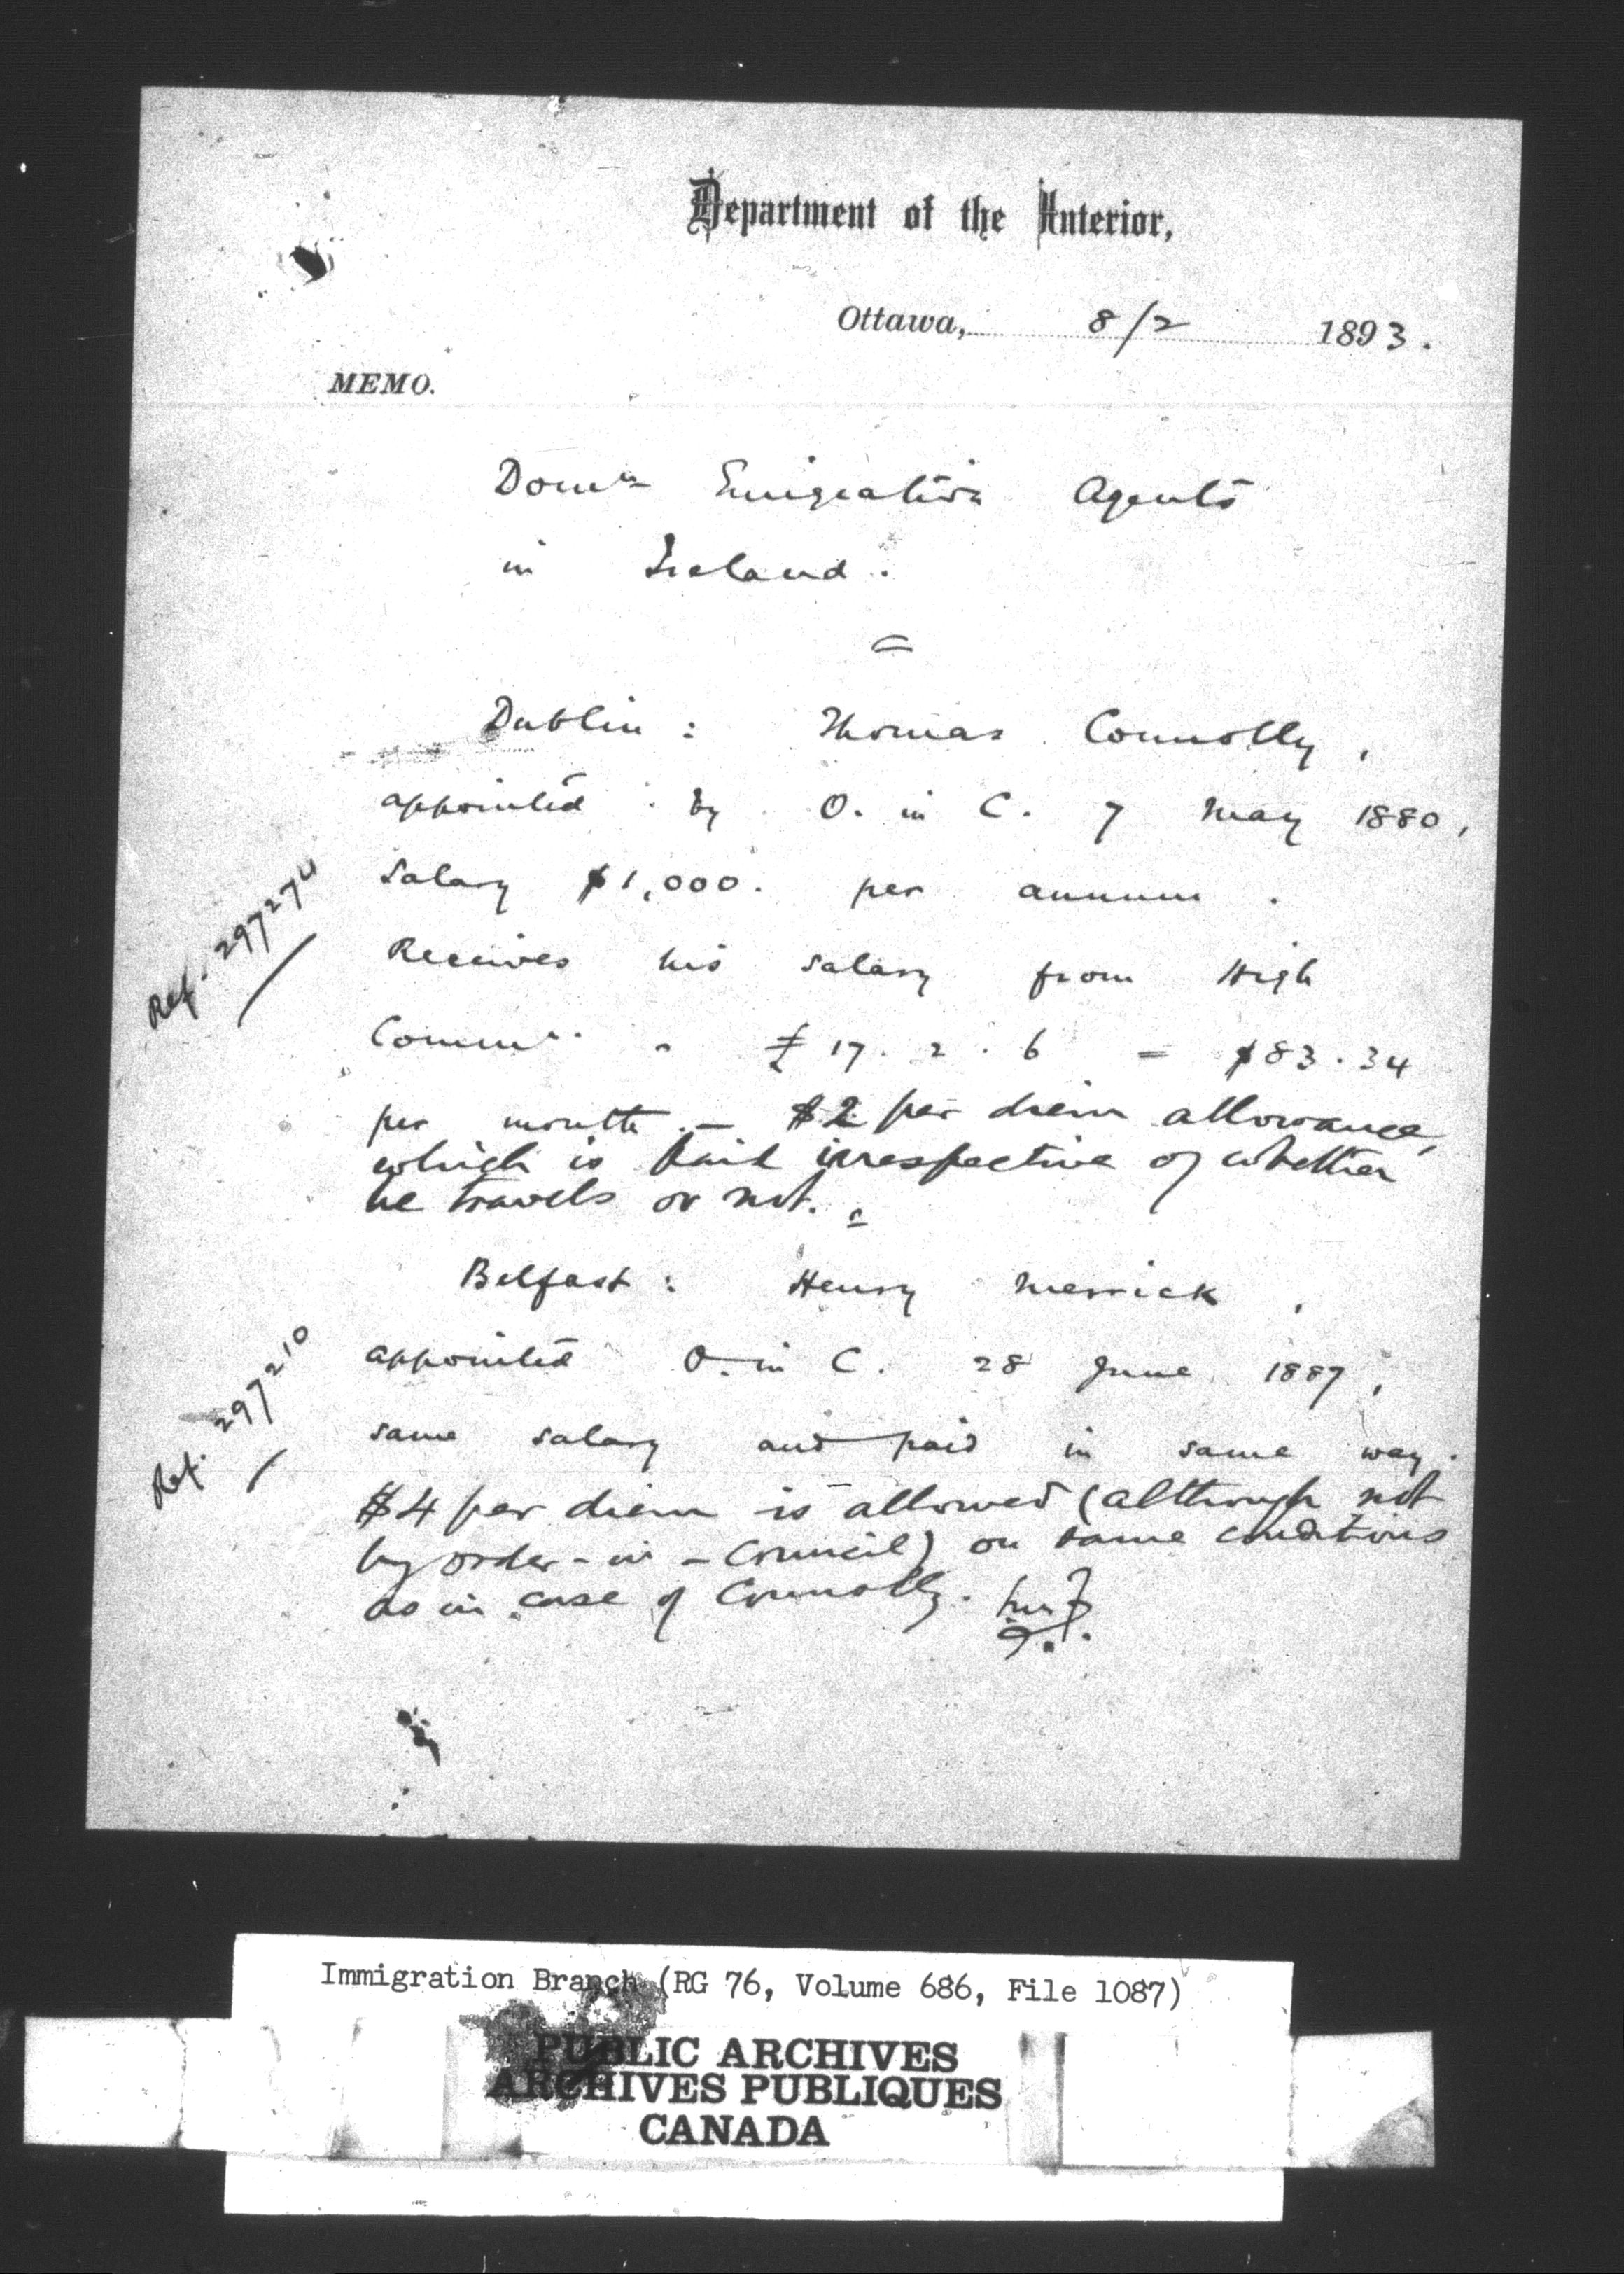 Department of the Interior,
Ottawa, 8/2 1893.
MEMO.
Domn Emigration Agents
in Ireland.
Dublin: Thomas Connolly,
appointed by O. in C. 7 May 1880,
Salary $1,000. per annum.
Ref. 297274
Receives his salary from High
Commr. - £17.2.6 = $83.34
per month. — $2 per diem allowance,
which is paid irrespective of whether
he travels or not.
Belfast: Henry Merrick,
appointed O. in C. 28 June 1887,
Ref. 297210
same salary and paid in same way.
$4 per diem is allowed (although not
by order-in-Council) on same conditions
as in case of Connolly.
Immigration Branch (RG 76, Volume 686, File 1087)
PUBLIC ARCHIVES
ARCHIVES PUBLIQUES
CANADA